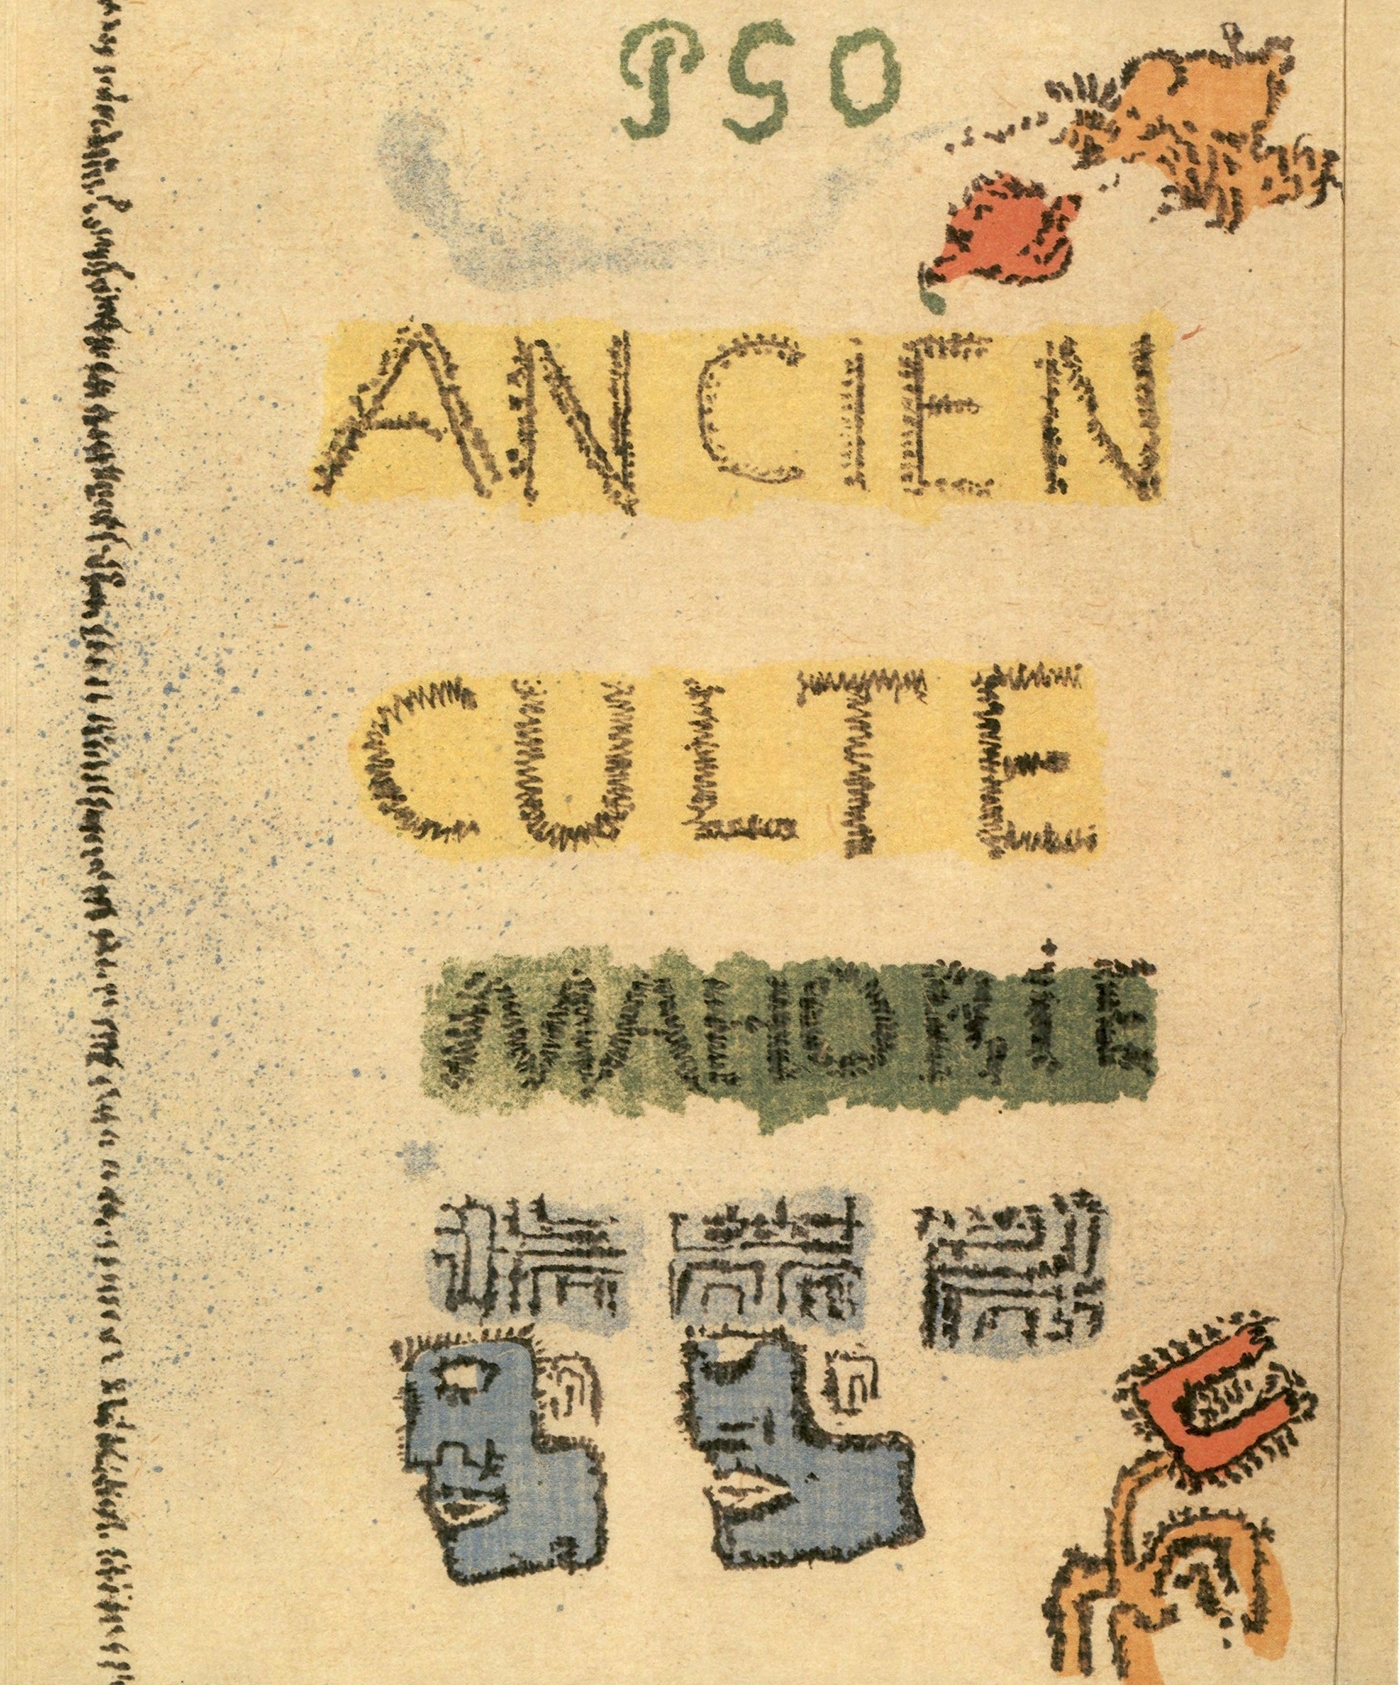 PSO
ANCIEN
CULTE
MAHORIE